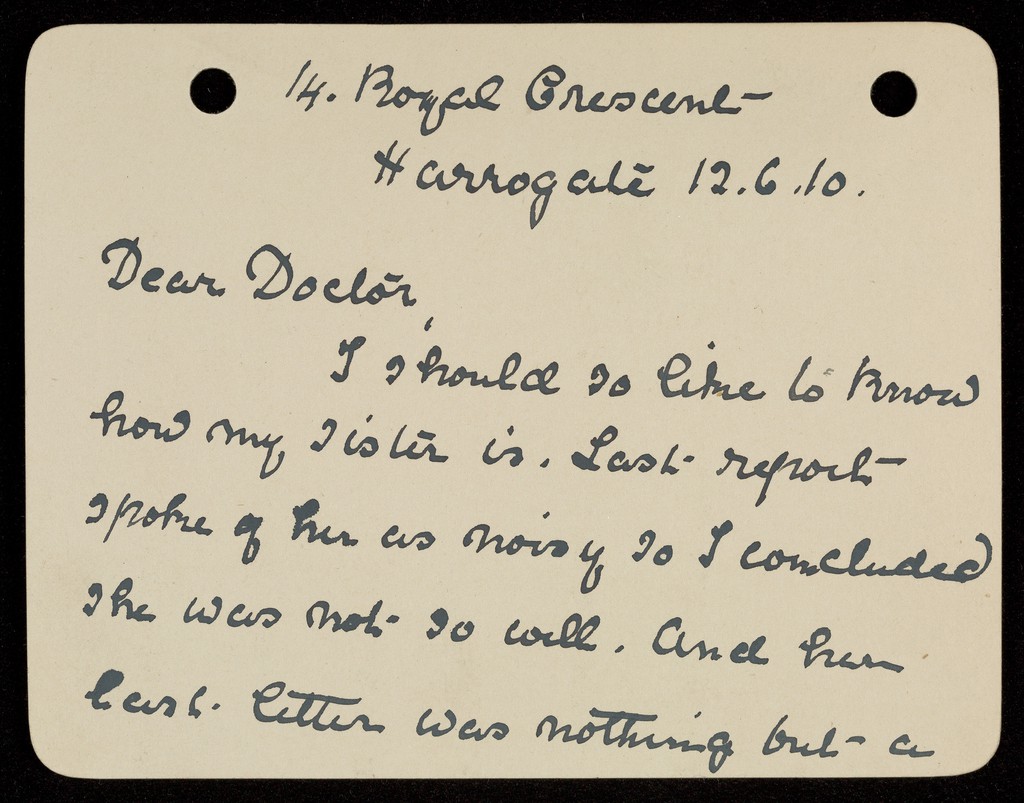 14. Royal Crescent
Harrogate 12.6.10.
Dear Doctor,
I should so like to know
how my sister is. Last report
spoke of her as noisy so I concluded
she was not so well. And her
last letter was nothing but a